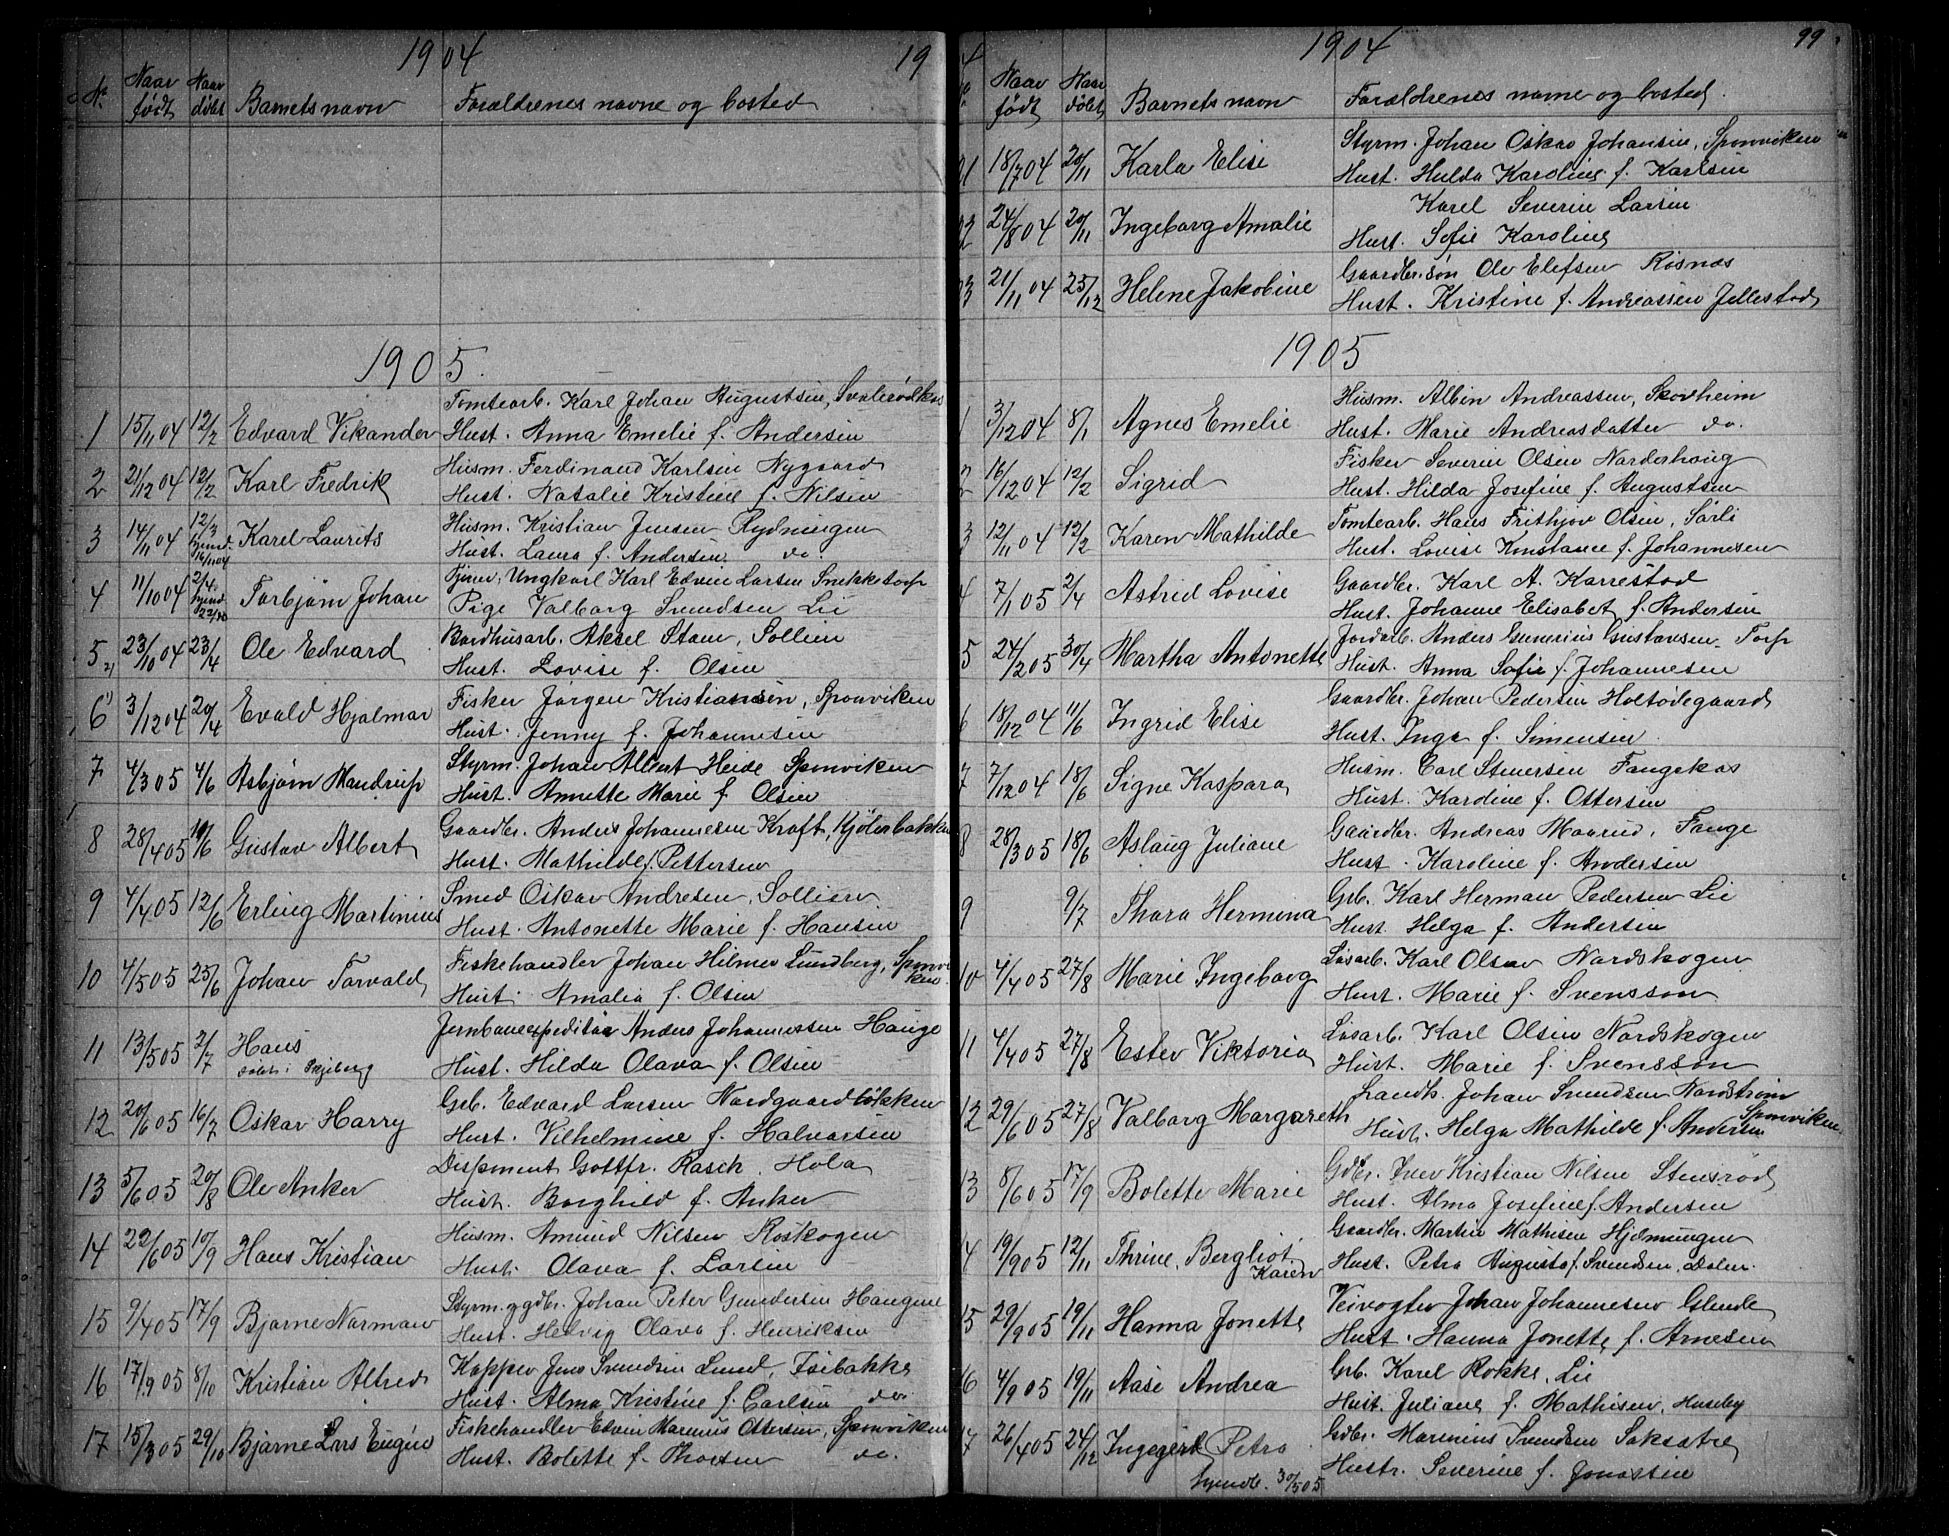 1904 19
No Naar født Naar døbt Barnets navn Forældrenes navne og bosted
1905.
1 15/11 04 12/2 Edvard Vikander Tomtearb. Karl Johan Augustsen,
Hust. Anna Emelie f. Andersen
2 21/12 04 12/2 Karl Fredrik Husm. Ferdinand Karlsen Nygaard
Hust. Natalie Kristine f. Nilsen
3 14/11 04 12/3 Karel Laurits Husm. Kristian Jensen Rydningen
16/11 04 Hust. Laura f. Andersen do.
4 11/10 04 2/4 Torbjørn Johan Ungkarl Karl Edvin Larsen Snekkstorp
Pige Valborg Svendsen Lie
5 23/10 04 23/4 Ole Edvard Aksel Stam, Sollien
Hust. Lovise f. Olsen
6 3/12 04 20/4 Evald Hjalmar Fisker Jørgen Kristiansen, Sponviken
Hust. Jenny f. Johannesen
7 4/3 05 4/6 Asbjørn Mandrup Styrm. Johan Albert Heide Sponviken
Hust. Annette Marie f. Olsen
8 28/4 05 11/6 Gustav Albert Gaardbr. Anders Johannesen Kraft, Kjølerbakken
Hust. Mathilde f. Pettersen
9 4/4 05 12/6 Erling Martinius Smed Oskar Andresen, Sollien.
Hust. Antonette Marie f. Hansen
10 4/5 05 25/6 Johan Torvald Fiskehandler Johan Hilmer Lundberg, Sponviken
Hust. Amalia f. Olsen
11 13/5 05 2/7 Hans Jernbaneexpeditør Anders Johannessen Hauge
døbt i Skjeberg Hust. Hilda Olava f. Olsen
12 20/6 05 16/7 Oskar Harry Grb. Edvard Larsen Nordgaardløkken
Hust. Vilhelmine f. Halvorsen
13 5/6 05 20/8 Ole Anker Disponent Gottfr. Rasch. Hola
Hust. Borghild f. Anker
14 22/6 05 10/9 Hans Kristian Husm. Amund Nilsen Røskogen
Hust. Olava f. Larsen
15 9/4 05 17/9 Bjarne Norman Styrm. og gdbr. Johan Peter Gundersen Haugene
Hust. Helvig Olava f. Henriksen
16 17/9 05 8/10 Kristian Alfred Kopper Jens Svendsen Lund, Isebakke
Hust. Alma Kristine f. Carlsen do.
17 15/3 05 29/10 Bjarne Lars Eugen Fiskehandler Edvin Marinus Ottersen, Sponviken
Hust. Bolette f. Thoesen do.
1904 99
Naar født Naar døbt Barnets navn Forældrenes navne og bosted.
21 18/7 04 20/11 Karla Elise Styrm. Johan Oskar Johansen, Sponviken
Hust. Hulda Karoline f. Karlsen
22 24/8 04 20/11 Ingeborg Amalie Karel Severin Larsen
Hust. Sofie Karoline
23 21/11 04 25/12 Helene Jakobine Gaardbr.søn Ole Elefsen Røsnæs
Hust. Kristine f. Andreassen Jellestad
1905
1 3/12 04 8/1 Agnes Emelie Husm. Albin Andreassen, Skovheim
Hust. Marie Andreasdatter do.
2 16/12 04 12/2 Sigrid Fisker Severin Olsen Norderhaug
Hust. Hilda Josefine f. Augustsen
3 12/11 04 12/2 Karen Mathilde Tomtearb. Hans Frithjov Olsen, Sørli
Hust. Lovise Konstance f. Johannesen
4 7/1 05 2/4 Astrid Lovise Gaardbr. Karl A. Karrestad
Hust. Johanne Elisabet f. Andersen
5 24/2 05 30/4 Martha Antonette Jordarb. Anders Gunerius Gustavsen. Torp
Hust. Anna Sofie f. Johannesen
6 18/12 04 11/6 Ingrid Elise Gaardbr. Johan Pedersen Holtødegaard
Hust. Inga f. Simensen.
7 7/12 04 18/6 Signe Kaspara Husm. Carl Stenersen Fangekas
Hust. Karoline f. Ottersen
8 28/3 05 18/6 Aslaug Juliane Gaardbr. Andreas Maarud, Fange
Hust. Karoline f. Andersen
9 9/7 Thora Hermina Grb. Karl Herman Pedersen Lie
Hust. Helga f. Andersen
10 4/4 05 27/8 Marie Ingeborg Løsarb. Karl Olsen Nordskogen
Hust. Marie f. Svensson
11 4/4 05 27/8 Ester Viktoria Løsarb. Karl Olsen Nordskogen
Hust. Marie f. Svensson
12 29/6 05 27/8 Valborg Margareth Landh. Johan Svendsen Nordstrøm
Sponviken
Hust. Helga Mathilde f. Andersen
13 8/6 05 17/9 Bolette Marie Gdbr. Iver Kristian Nilsen Stensrød
Hust. Alma Josefine f. Andersen
14 19/9 05 12/11 Thrine, Bergliot Karen Gaardbr. Martin Mathisen Hjelmungen
Hust. Petra Augusta f. Svendsen, Dalen.
15 29/9 05 19/11 Hanna Jonette Veivogter Johan Johannesen Glende
Hust. Hanna Jonette f. Arnesen
16 4/9 05 19/11 Aase Andrea Grb. Karel Rokke, Lie
Hust. Juliane f. Mathisen, Huseby
17 26/4 05 24/12 Ingegerd Petra Gdbr. Marinius Svendsen Saksatre
hjemdb. 30/5 05 Hustr. Severine f. Jonassen